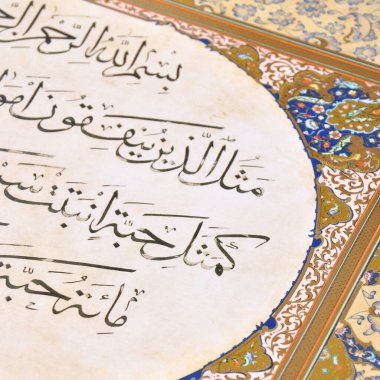 بسم الله الرحمن
مثل الذين ينفقون
كمثل حبة انبتت
مائة حبة